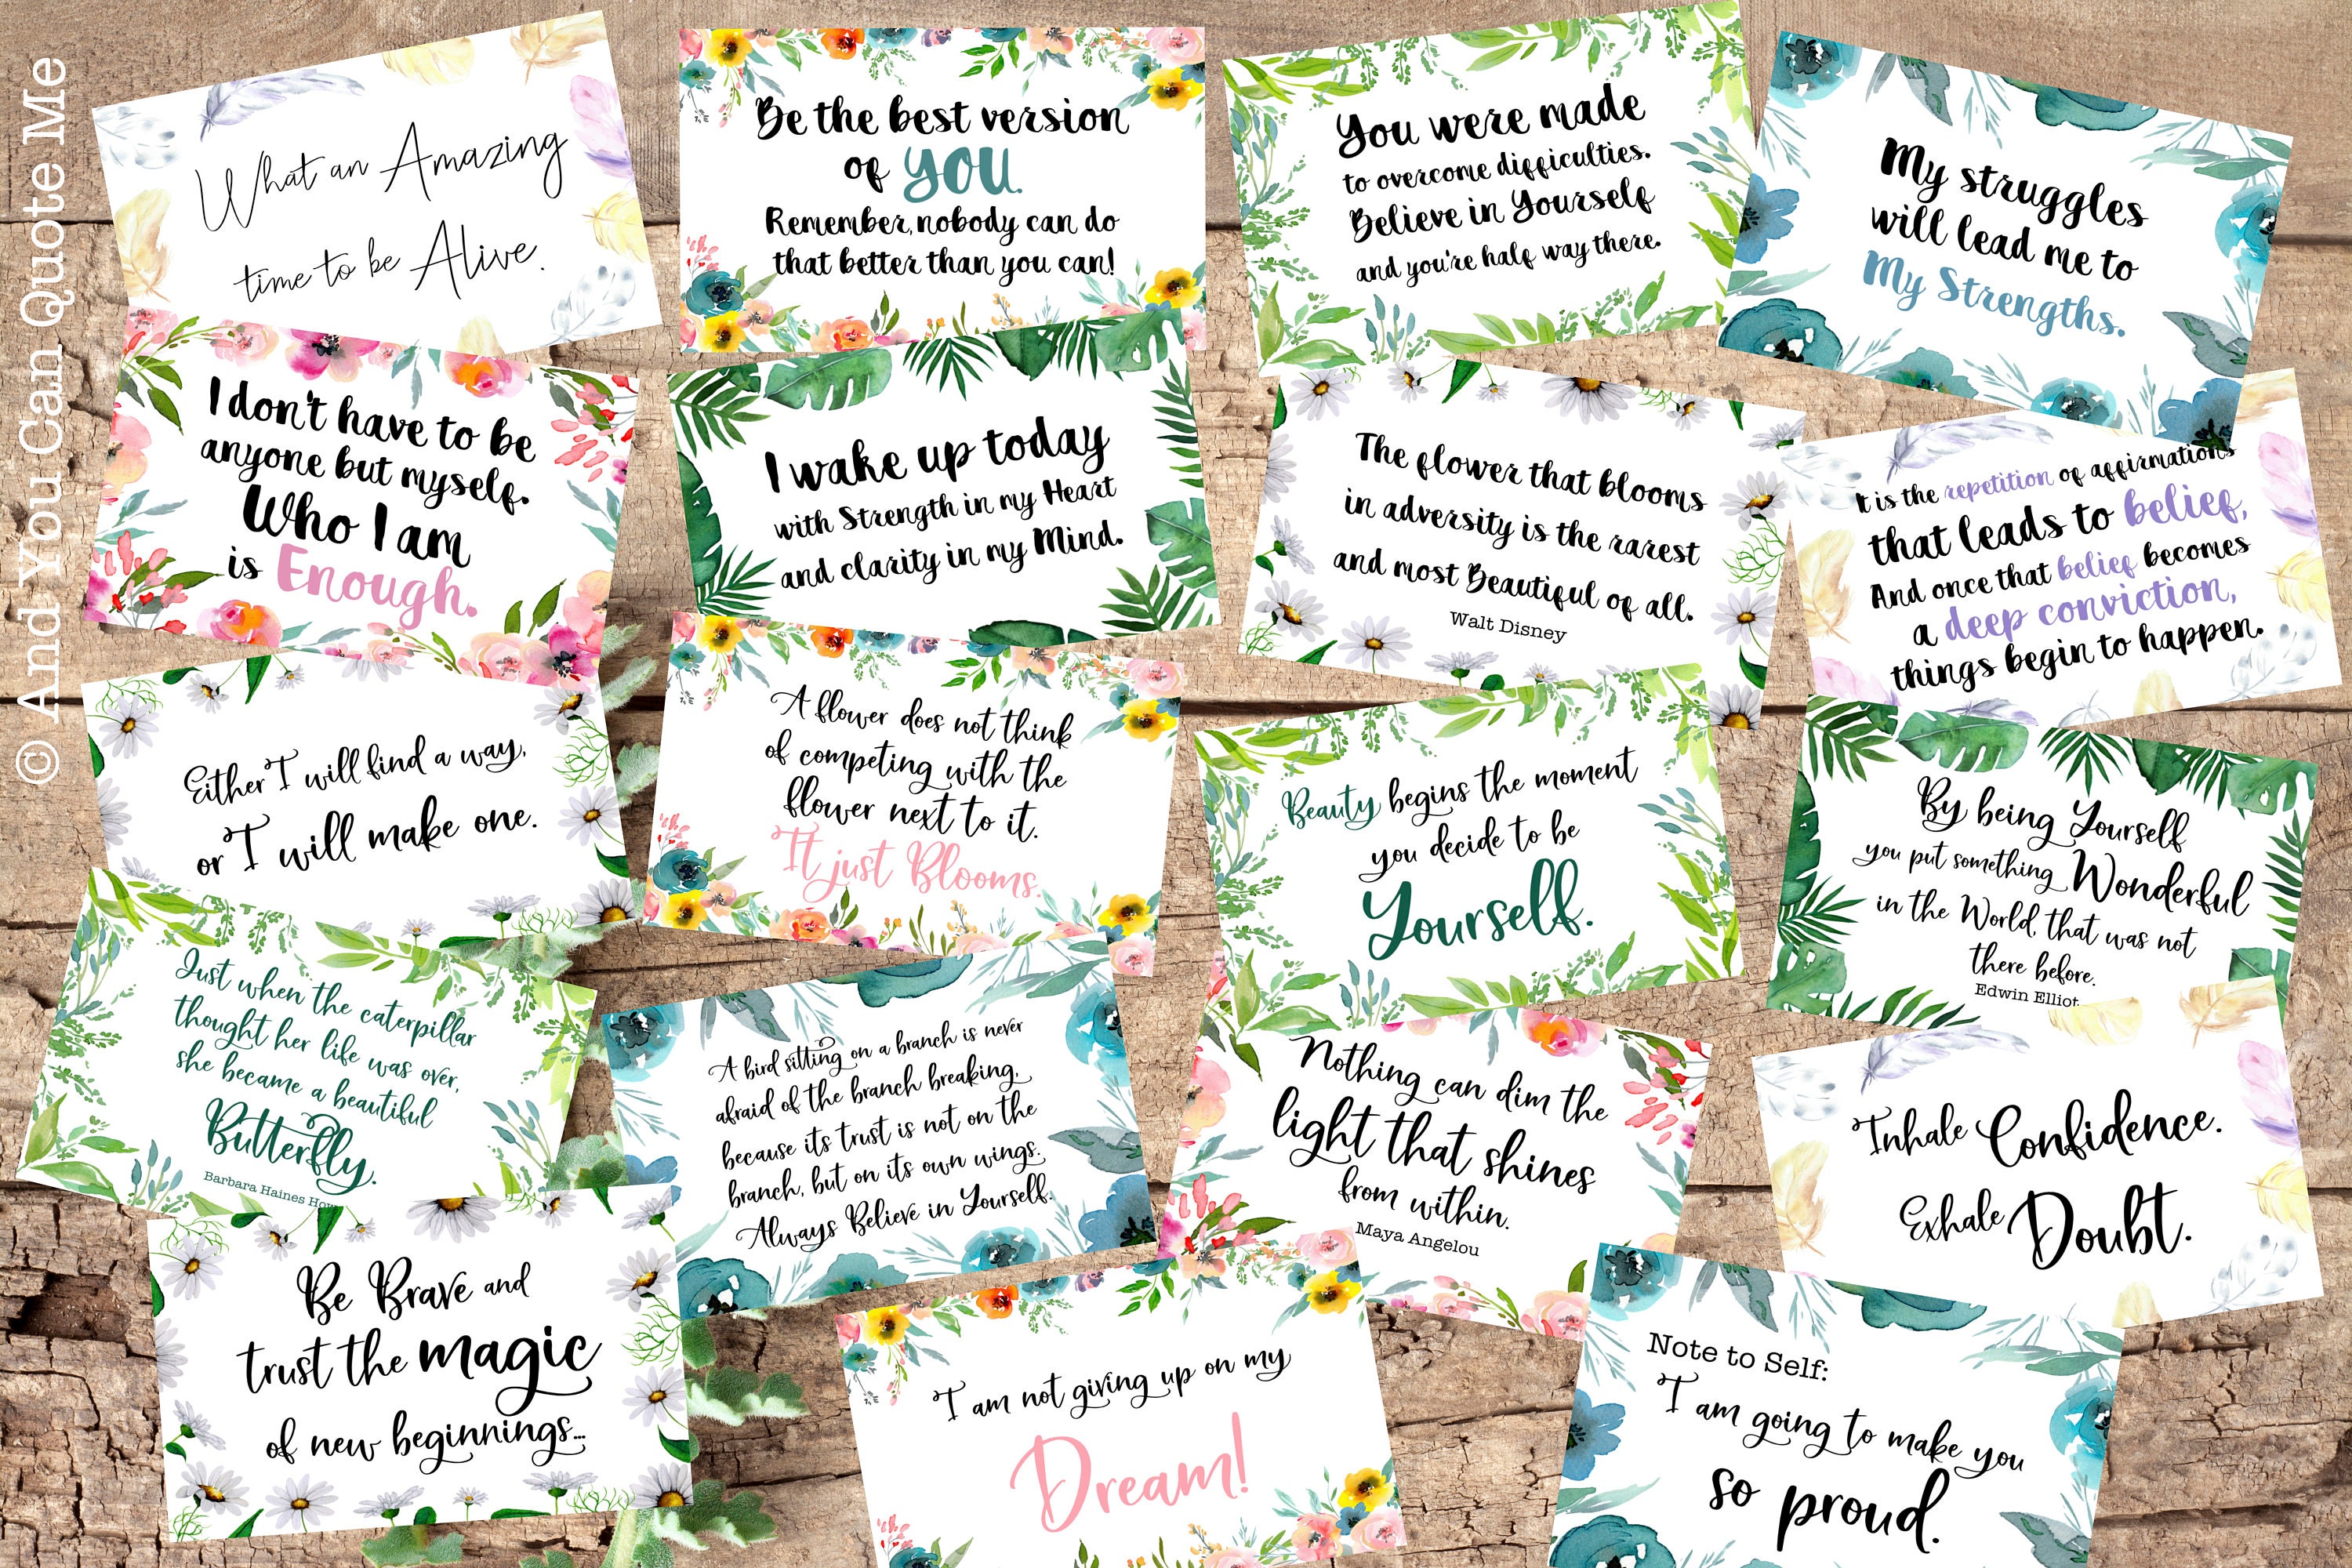 © And You Can Quote Me
What an Amazing
time to be Alive.
Be the best version
of you.
Remember, nobody can do
that better than you can!
You were made
to overcome difficulties.
Believe in Yourself
and you're half way there.
My struggles
will lead me to
My Strengths.
I don't have to be
anyone but myself.
Who I am
is Enough.
I wake up today
with Strength in my Heart
and clarity in my Mind.
The flower that blooms
in adversity is the rarest
and most Beautiful of all.
Walt Disney
It is the repetition of affirmations
that leads to belief,
And once that belief becomes
a deep conviction,
things begin to happen.
Either I will find a way,
or I will make one.
A flower does not think
of competing with the
flower next to it.
It just Blooms.
Beauty begins the moment
you decide to be
Yourself.
By being Yourself
you put something Wonderful
in the World that was not
there before.
Edwin Elliot
Just when the caterpillar
thought her life was over,
she became a beautiful
Butterfly.
Barbara Haines How
A bird sitting on a branch is never
afraid of the branch breaking,
because its trust is not on the
branch, but on its own wings.
Always Believe in Yourself.
Nothing can dim the
light that shines
from within.
Maya Angelou
Inhale Confidence.
Exhale Doubt.
Be Brave and
trust the magic
of new beginnings...
I am not giving up on my
Dream!
Note to Self:
I am going to make you
so proud.